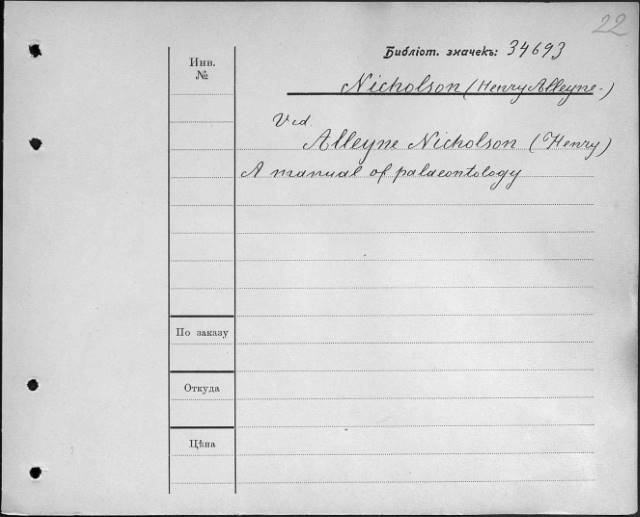 22
Библіот. значекъ: 34693
Инв.
№
Nicholson (Henry Alleyne-)
Vid.
Alleyne Nicholson (Henry)
A manual of palaeontology
По заказу
Откуда
Цѣна